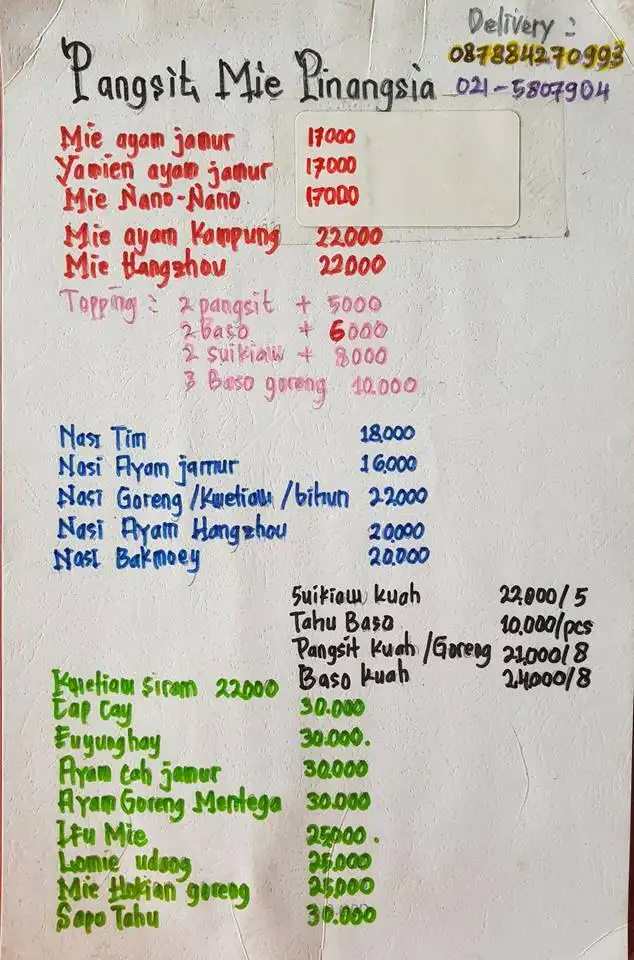 Delivery :
087884270993
Pangsit Mie Pinangsia 021-5807904
Mie ayam jamur 17000
Yamien ayam jamur 17000
Mie Nano-Nano 17000
Mie ayam Kampung 22.000
Mie Hangzhou 22000
Topping : 2 pangsit + 5000
2 baso + 6000
2 suikiaw + 8000
3 Baso goreng 10.000
Nasi Tim 18.000
Nasi Ayam jamur 16.000
Nasi Goreng/Kwetiaw/bihun 22.000
Nasi Ayam Hangzhou 20.000
Nasi Bakmoey 20.000
Suikiaw kuah 22.000/5
Tahu Baso 10.000/pcs
Pangsit Kuah/Goreng 21.000/8
Baso kuah 24.000/8
Kwetiaw Siram 22000
Cap Cay 30.000
Fuyunghay 30.000.
Ayam cah jamur 30.000
Ayam Goreng Mentega 30.000
Ifu Mie 25.000.
Lomie udang 25.000
Mie Hokian goreng 25.000
Sapo Tahu 30.000